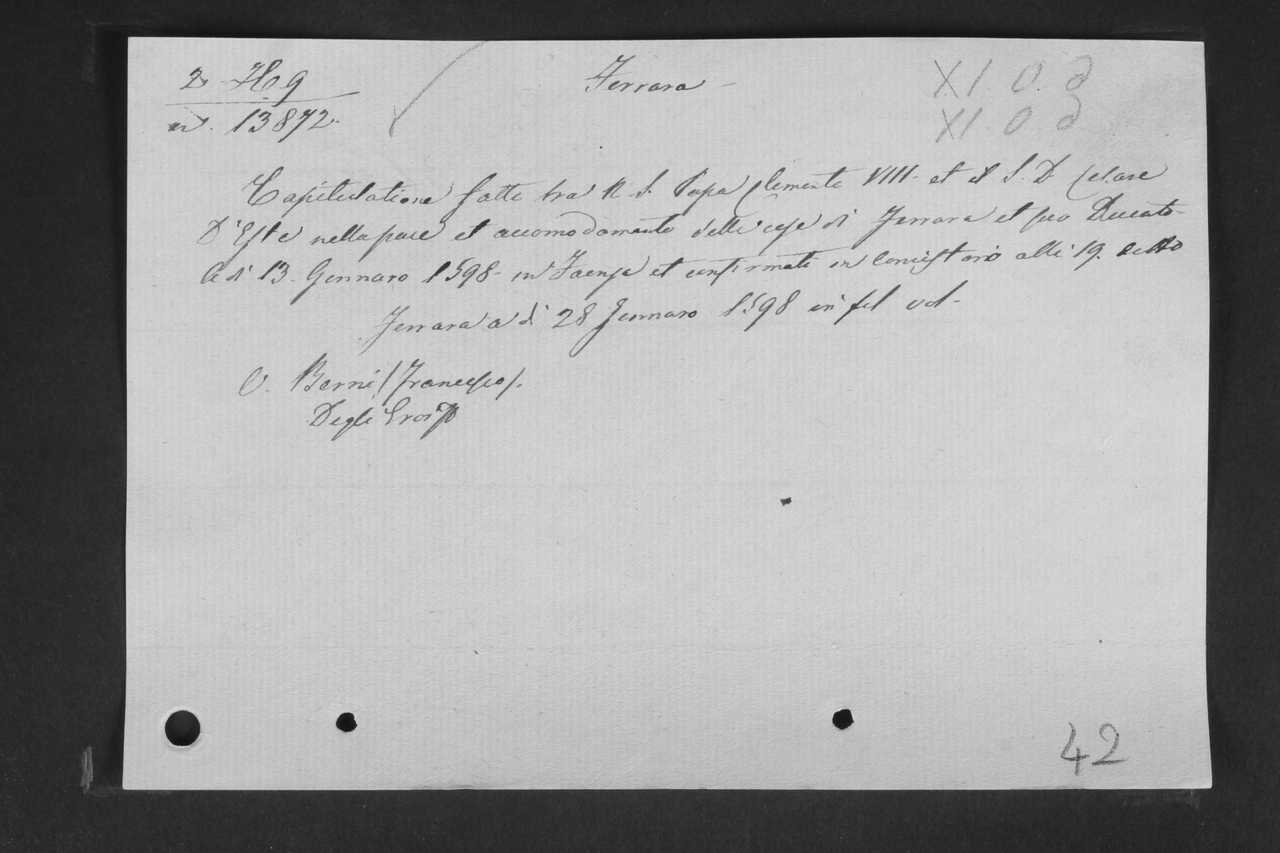 2. H. 9
n. 13872.
Ferrara -
XI O. d
XI O d
Capitulatione fatte tra N. S. Papa Clemente VIII. et il S. D. Cesare
D'Este nella pace et accomodamento delle cose di Ferrara et suo Ducato
li 13. Gennaro 1598 - in Faenza et confirmate in Concistorio alli 19. detto
Ferrara a di 28 Gennaro 1598 in fol vol -
V. Berni (Francesco).
Degli Eroi
42